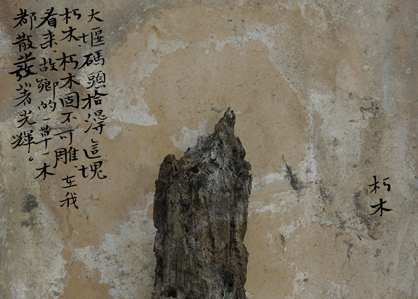 朽木
大堰碼頭拾得這塊
朽木，朽木固不可雕，在我
看来，故鄉的一草一木
都散發着光輝。